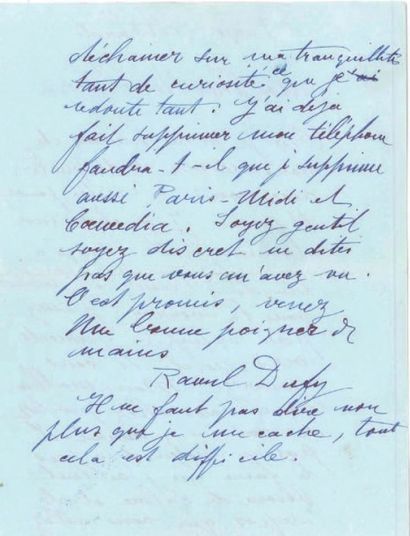 déchainer sur ma tranquillité
tant de curiosité ce que je
redoute tant. J'ai deja
fait supprimer mon téléphone
faudra-t-il que je supprime
aussi Paris-Midi et
Comoedia. Soyez gentil
soyez discret ne dites
pas que vous m'avez vu.
C'est promis, venez
Une bonne poignée de
mains
Raoul Dufy
Il ne faut pas dire non
plus que je me cache, tout
cela est difficile.